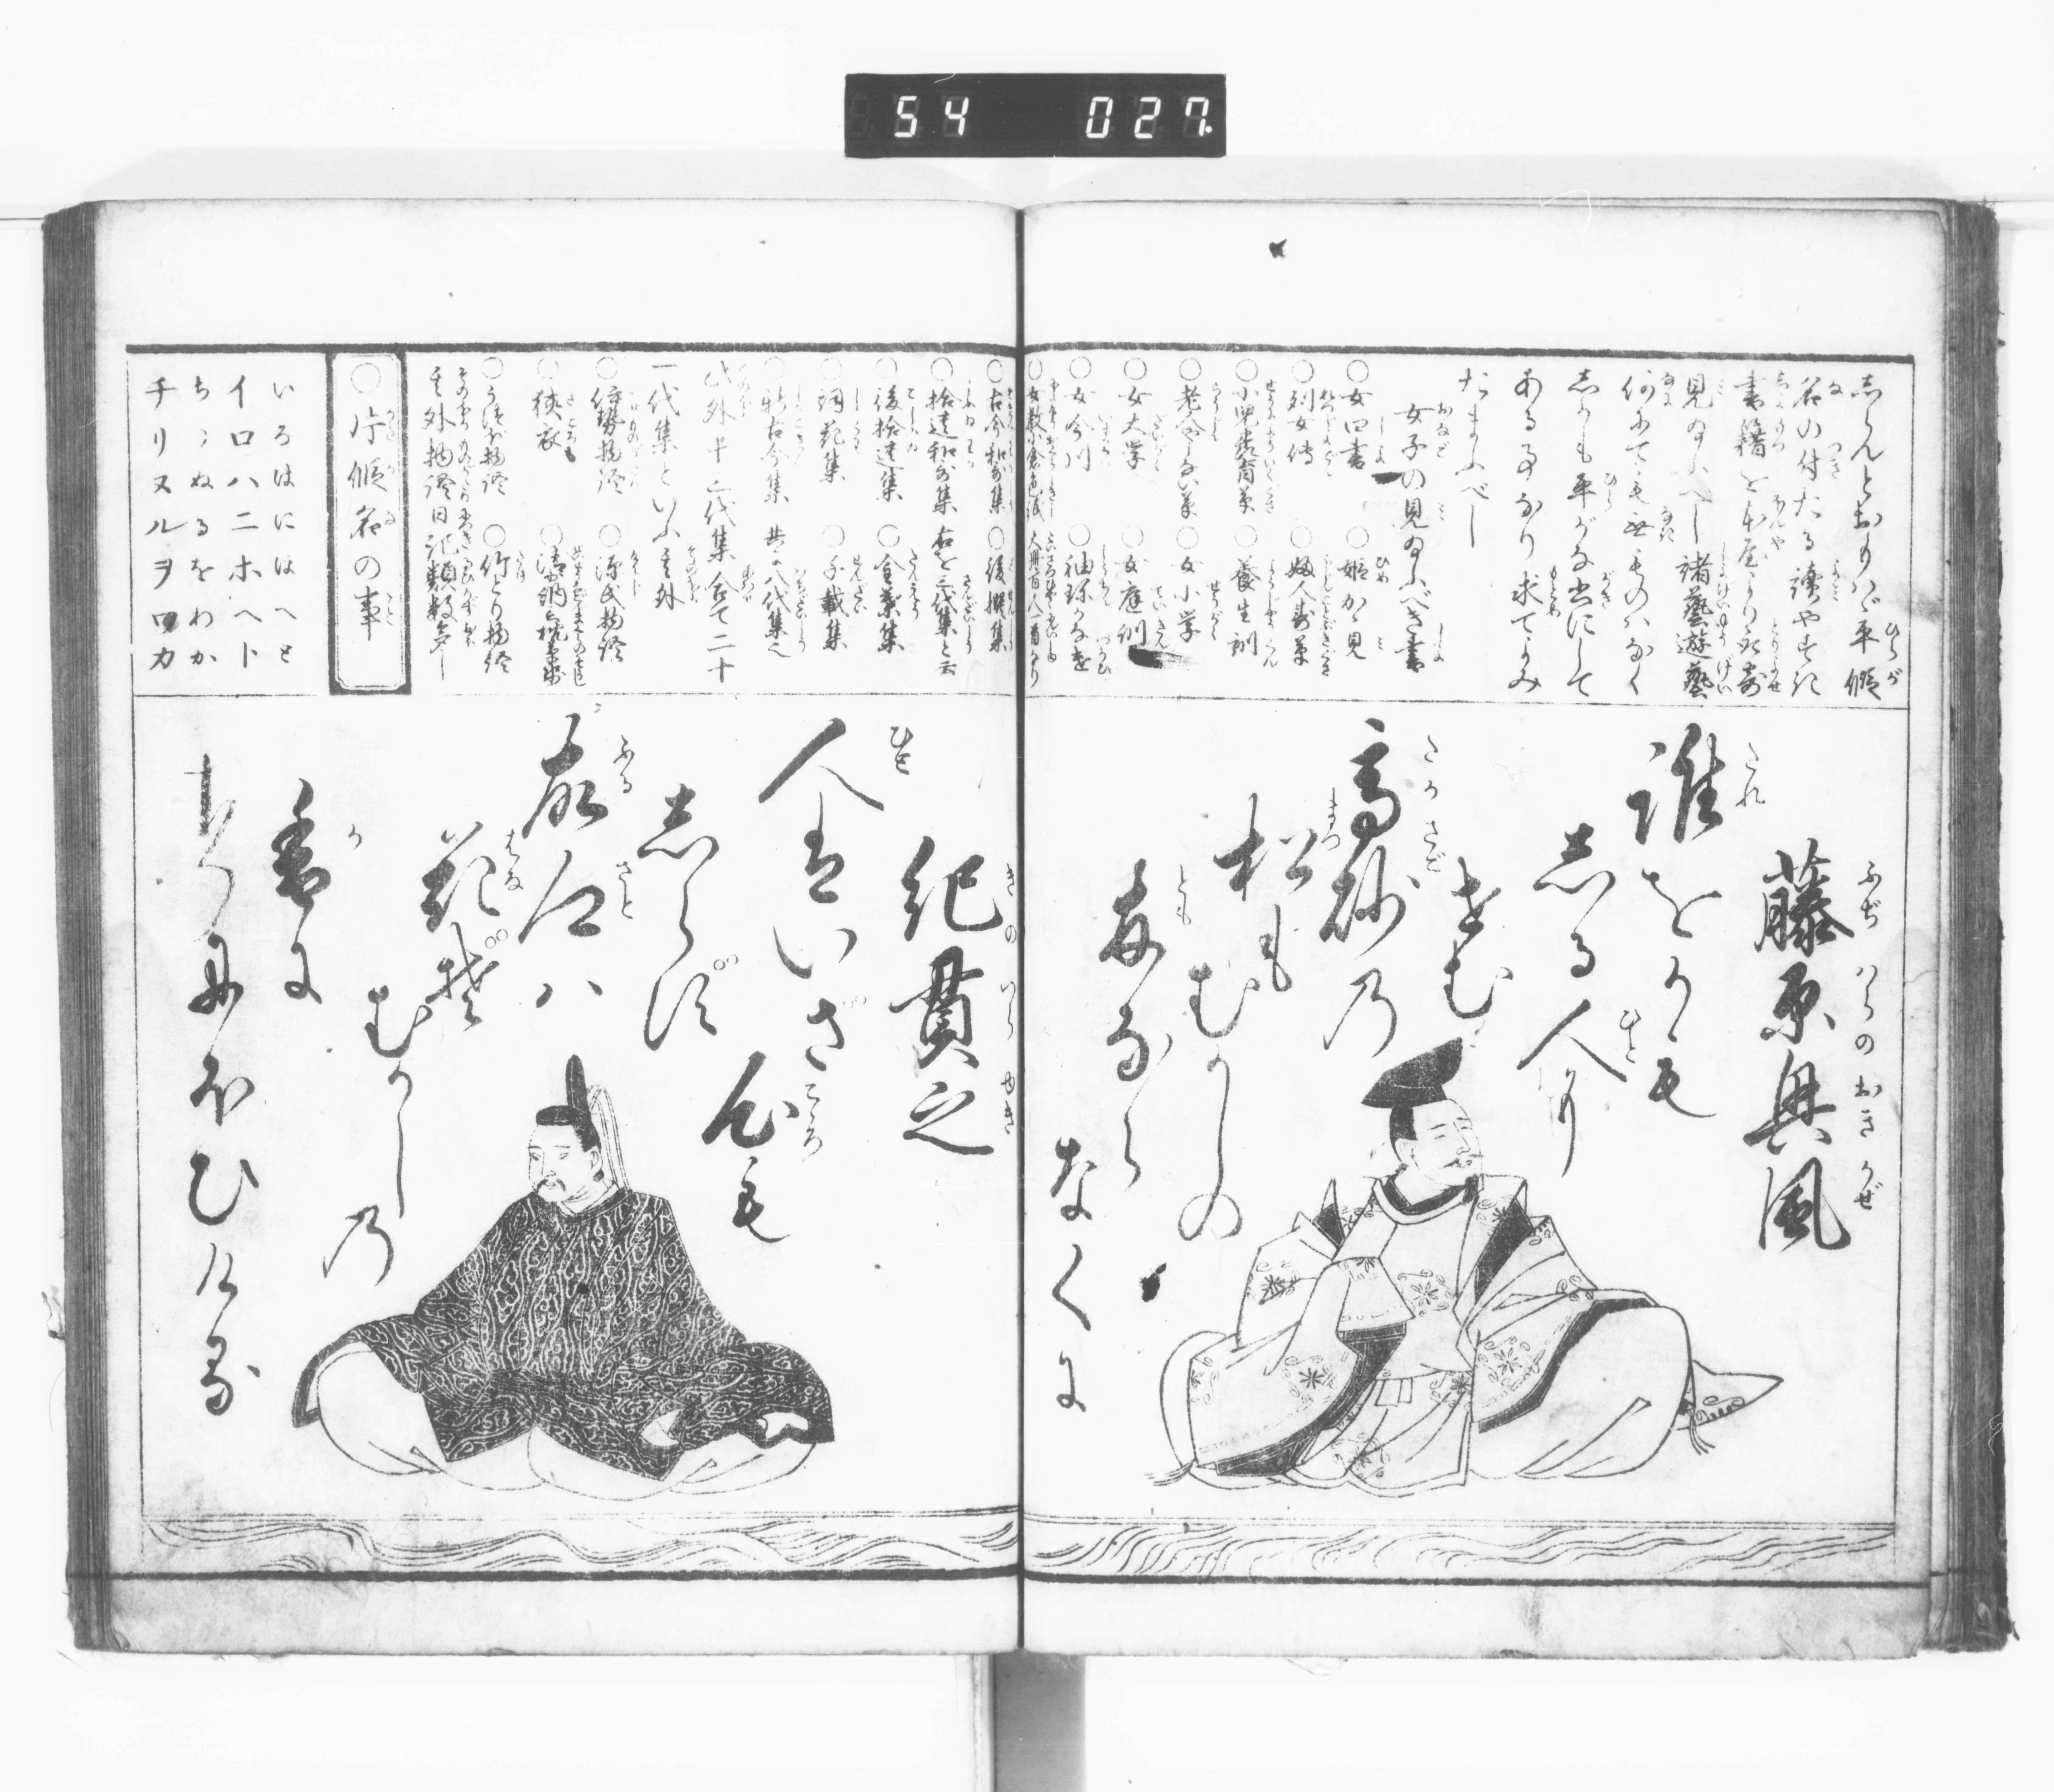 54 027
志らんとおもハゞ平假
名の付たる讀やすき
書籍を本屋より取寄
見給ふべし諸藝遊藝
何にても無ものハなく
志かも平がな書にして
ある事なり求てよみ
たまふべし
女子の見給ふべき書
○女四書 ○姫かゞ見
○列女傳 ○婦人寿草
○小児養育草 ○養生訓
○老人やしなひ草 ○女小学
○女大学 ○女庭訓
○女今川 ○袖珍かな遣
○古今和哥集 ○後撰集
○拾遺和哥集 右を三代集と云
○後拾遺集 ○金葉集
○詞花集 ○千載集
○新古今集 共に八代集也
此外十三代集合て二十
一代集といふ其外
○伊勢物語 ○源氏物語
○狭衣 ○清少納言枕草紙
○うつほ物語 ○竹とり物語
其外物語日記類数多し
○片假名の事
いろはにほへと
イロハニホヘト
ちりぬるをわか
チリヌルヲワカ
藤原興風
誰をかも
志る人に
せむ
高砂乃
松も
むかしの
友なら
なくに
紀貫之
人はいざ
心も
志らず
故郷ハ
花ぞ
むかし乃
香に
匂ひける